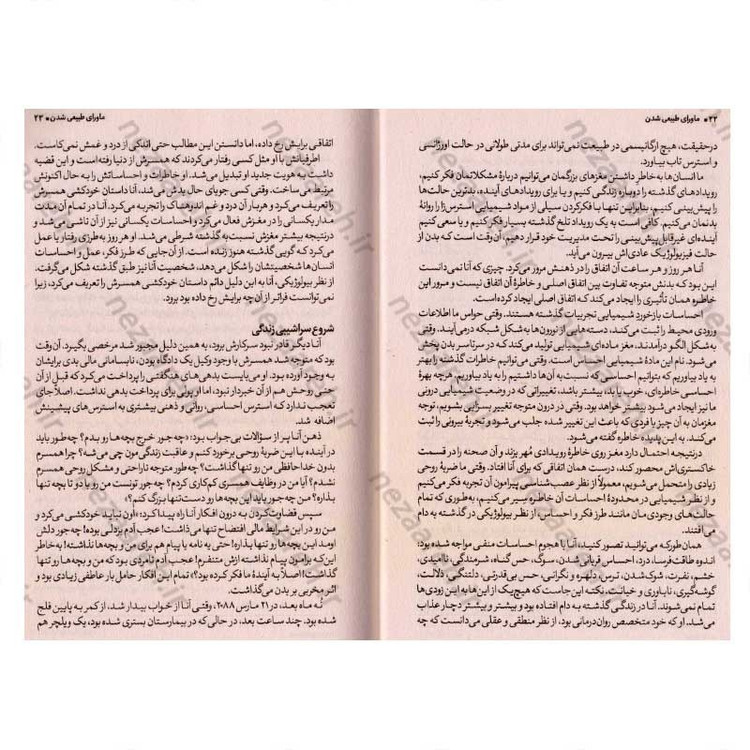 ۲۲● ماورای طبیعی شدن
درحقیقت، هیچ ارگانیسمی در طبیعت نمی‌تواند برای مدتی طولانی در حالت اورژانسی
و استرس تاب بیاورد.
ما انسان‌ها به‌خاطر داشتن مغزهای بزرگمان می‌توانیم دربارهٔ مشکلاتمان فکر کنیم
رویدادهای گذشته را دوباره زندگی کنیم و یا برای رویدادهای آینده، بدترین حالت‌ها
را پیش‌بینی کنیم، بنابراین تنها با فکرکردن سیلی از مواد شیمیایی استرس‌زا را روانهٔ
بدنمان می‌کنیم. کافی است به یک رویداد تلخ گذشته بسیار فکر کنیم و یا سعی کنیم
آینده‌ای غیرقابل‌پیش‌بینی را تحت مدیریت خود قرار دهیم، آن‌وقت است که بدن از
حالت فیزیولوژیک عادی‌اش بیرون می‌آید.
آنا هر روز و هر ساعت آن اتفاق را در ذهنش مرور می‌کرد. چیزی که آنا نمی‌دانست
این بود که بدنش متوجه تفاوت بین اتفاق اصلی و خاطرهٔ آن اتفاق نیست و این
خاطره همان تأثیری را ایجاد می‌کند که اتفاق اصلی ایجاد کرده است.
احساسات بازخورد شیمیایی تجربیات گذشته هستند. وقتی حواس ما اطلاعات
ورودی محیط را ثبت می‌کند، دسته‌هایی از نورون‌ها به‌شکل شبکه درمی‌آیند. وقتی
به شکل الگو درآمدند، مغز ماده‌ای شیمیایی تولید می‌کند که در سرتاسر بدن پخش
می‌شود. نام این مادهٔ شیمیایی احساس است. وقتی می‌توانیم خاطرات گذشته را بهتر
به یاد بیاوریم که بتوانیم احساسی که نسبت به آن‌ها داشتیم را به یاد بیاوریم. هرچه بهرهٔ
احساسی خاطره‌ای، خوب یا بد، بیشتر باشد، تغییراتی که در وضعیت شیمیایی درونی
ما نیز ایجاد می‌شود بیشتر خواهد بود. وقتی در درون متوجه تغییر بسزایی بشویم، توجه
مغزمان به آن چیز یا فردی که باعث این تغییر شده جلب می‌شود و تجربهٔ بیرونی را ثبت
می‌کند. به این پدیده خاطره گفته می‌شود.
درنتیجه احتمال دارد مغز روی خاطرهٔ رویدادی مُهر بزند و آن صحنه را در قسمت
خاکستری‌اش محصور کند، درست همان اتفاقی که برای آنا افتاد. وقتی ما ضربهٔ روحی
زیادی را متحمل می‌شویم، معمولاً از نظر عصب‌شناسی پیرامون آن تجربه فکر می‌کنیم
و از نظر شیمیایی در محدودهٔ احساسات آن خاطره سیر می‌کنیم، به‌طوری که تمام
حالت‌های وجودی‌مان مانند طرز فکر و احساس، از نظر بیولوژیکی در گذشته به دام
می‌افتند.
همان طور که می‌توانید تصور کنید، آنا با هجوم احساسات منفی مواجه شده بود:
اندوه طاقت‌فرسا، درد، احساس قربانی شدن، سوگ، حس گناه، شرمندگی، ناامیدی،
خشم، نفرت، شوک‌شدن، ترس، دلهره و نگرانی، حس بی‌قدرتی، دلتنگی، دلالت،
گوشه‌گیری، ناباوری و خیانت. نکته این جاست که هیچ‌یک از این‌ها به این زودی‌ها
تمام نمی‌شوند. آنا در زندگی گذشته به دام افتاده بود و بیشتر و بیشتر دچار عذاب
می‌شد. او که خود متخصص روان‌درمانی بود، از نظر منطقی و عقلی می‌دانست که چه
ماورای طبیعی شدن ●۲۳
اتفاقی برایش رخ داده، اما دانستن این مطالب حتی اندکی از درد و غمش نمی‌کاست.
اطرافیانش با او مثل کسی رفتار می‌کردند که همسرش از دنیا رفته است و این قضیه
داشت به هویت جدید او تبدیل می‌شد. او خاطرات و احساساتش را به حال اکنونش
مرتبط می‌ساخت. وقتی کسی جویای حال بدش می‌شد، آنا داستان خودکشی همسرش
را تعریف می‌کرد و هربار آن درد و غم اندوهناک را تجربه می‌کرد. آنا در تمام آن مدت
مدار یکسانی را در مغزش فعال می‌کرد و احساسات یکسانی نیز از آن ناشی می‌شد و
درنتیجه بیشتر مغزش نسبت به گذشته شرطی می‌شد. او هر روز به‌طرزی رفتار یا عمل
می‌کرد که گویی گذشته هنوز زنده است. از آن‌جایی که طرز فکر، عمل و احساسات
انسان‌ها شخصیتشان را شکل می‌دهد، شخصیت آنا نیز طبق گذشته شکل می‌گرفت.
از نظر بیولوژیکی، آنا به این دلیل دائم داستان خودکشی همسرش را تعریف می‌کرد، زیرا
نمی‌توانست فراتر از آن چه برایش رخ داده بود برود.
شروع سراشیبی زندگی
آنا دیگر قادر نبود سرکارش برود، به همین دلیل مجبور شد مرخصی بگیرد. آن‌وقت
بود که متوجه شد همسرش با وجود وکیل یک دادگاه بودن، نابسامانی مالی بدی برایشان
به وجود آورده بود. او می‌بایست بدهی‌های هنگفتی را پرداخت می‌کرد که قبل از آن
حتی روحش هم از آن خبردار نبود، اما او پولی برای پرداخت بدهی نداشت. اصلاً جای
تعجب ندارد که استرس احساسی، روانی و ذهنی بیشتری به استرس‌های پیشینش
اضافه شد.
ذهن آنا پر از سؤالات بی‌جواب بود: «چه جور خرج بچه‌ها رو بدم؟ چه‌طور باید
در آینده با این ضربهٔ روحی برخورد کنم و عاقبت زندگی‌مون چی می‌شه؟ چرا همسرم
بدون خداحافظی من رو تنها گذاشت؟ چه‌طور متوجه ناراحتی و مشکل روحی همسرم
نشدم؟ آیا من در وظایف همسری کم‌کاری کردم؟ چه‌جور تونست من رو با دو تا بچه تنها
بذاره؟ من چه جور باید این بچه‌ها رو دست‌تنها بزرگ کنم؟»
سپس قضاوت‌کردن به درون افکار آنا راه پیدا کرد: «اون نباید خودکشی می‌کرد و
من رو در این شرایط مالی افتضاح تنها می‌ذاشت! عجب آدم بزدلی بوده! چه‌جور دلش
اومد این بچه‌ها رو تنها بذاره! حتی یه نامه یا پیام هم برای من و بچه‌ها نذاشته! به‌خاطر
این‌که برامون پیام نذاشته ازش متنفرم! عجب آدم نامردی بود که من و بچه‌ها رو تنها
گذاشت! اصلاً به آیندهٔ ما فکر کرده بود؟» تمام این افکار حامل بار عاطفی زیادی بود و
اثر مخربی بر بدن می‌گذاشت.
نُه ماه بعد، در ۲۱ مارس ۲۰۸۸، وقتی آنا از خواب بیدار شد، از کمر به پایین فلج
شده بود. چند ساعت بعد، در حالی که در بیمارستان بستری شده بود، یک ویلچر هم